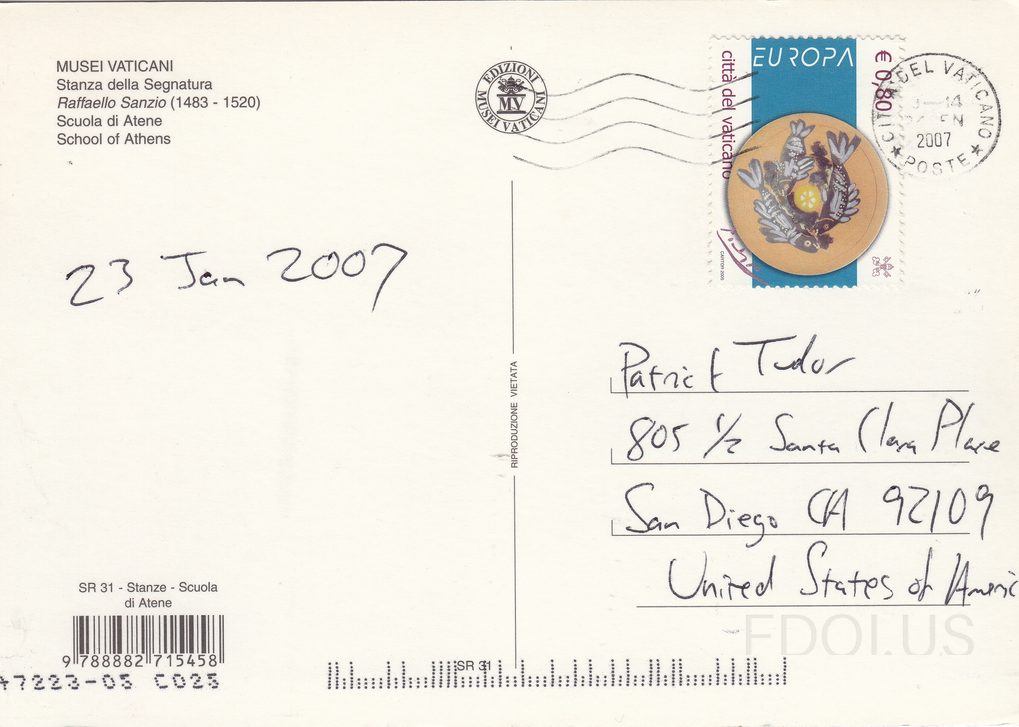 MUSEI VATICANI
Stanza della Segnatura
Raffaello Sanzio (1483 - 1520)
Scuola di Atene
School of Athens
EDIZIONI
MV
MUSEI VATICANI
EUROPA
€ 0,80
città del vaticano
CARTOR 2005
CITTA DEL VATICANO
2007
POSTE
23 Jan 2007
RIPRODUZIONE VIETATA
Patrick Tudor
805 1/2 Santa Clara Place
San Diego CA 92109
United States of Americ
SR 31 - Stanze - Scuola
di Atene
9 788882 715458
47223-05 C025
SR 31
FDOI.US